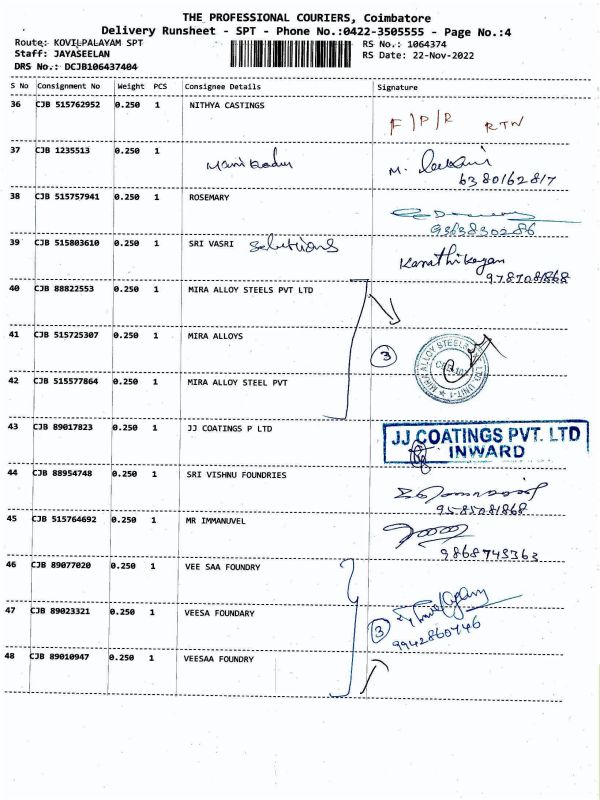 THE PROFESSIONAL COURIERS, Coimbatore
Delivery Runsheet - SPT - Phone No.:0422-3505555 - Page No.:4
Route: KOVILPALAYAM SPT
RS No.: 1064374
Staff: JAYASEELAN
RS Date: 22-Nov-2022
DRS No.: DCJB106437404
S No Consignment No Weight PCS Consignee Details Signature
36 CJB 515762952 0.250 1 NITHYA CASTINGS
F/P/R RTN
37 CJB 1235513 0.250 1
Manikadu M.
6380162817
38 CJB 515757941 0.250 1 ROSEMARY
9363830286
39 CJB 515803610 0.250 1 SRI VASRI Solutions
Karathikeyan
9787081868
40 CJB 88822553 0.250 1 MIRA ALLOY STEELS PVT LTD
41 CJB 515725307 0.250 1 MIRA ALLOYS
3
MIRA ALLOY STEELS LTD. UNIT-1
42 CJB 515577864 0.250 1 MIRA ALLOY STEEL PVT
43 CJB 89017823 0.250 1 JJ COATINGS P LTD
JJ COATINGS PVT. LTD
INWARD
44 CJB 88954748 0.250 1 SRI VISHNU FOUNDRIES
9585081868
45 CJB 515764692 0.250 1 MR IMMANUVEL
9868745363
46 CJB 89077020 0.250 1 VEE SAA FOUNDRY
47 CJB 89023321 0.250 1 VEESA FOUNDARY
3
9942860746
48 CJB 89010947 0.250 1 VEESAA FOUNDRY